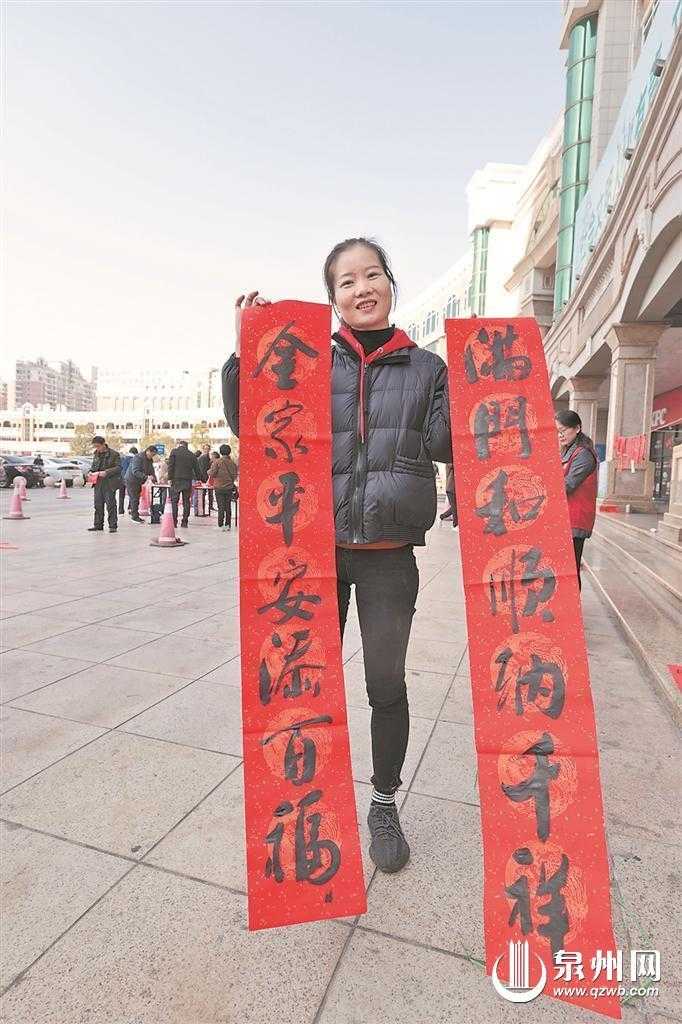 全家平安添百福
满门和顺纳千祥
KFC
泉州网
www.qzwb.com